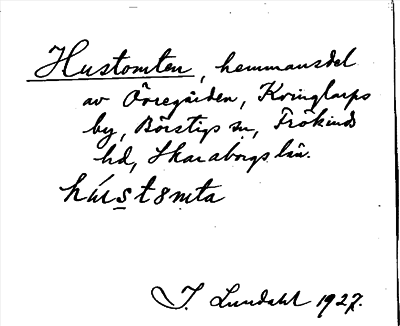 Hustomten, hemmansdel
av Övregården, Kvinglarps
by, Börstigs sn, Frökinds
hd, Skaraborgs län.
hús t8mta
I. Lundahl 1927.